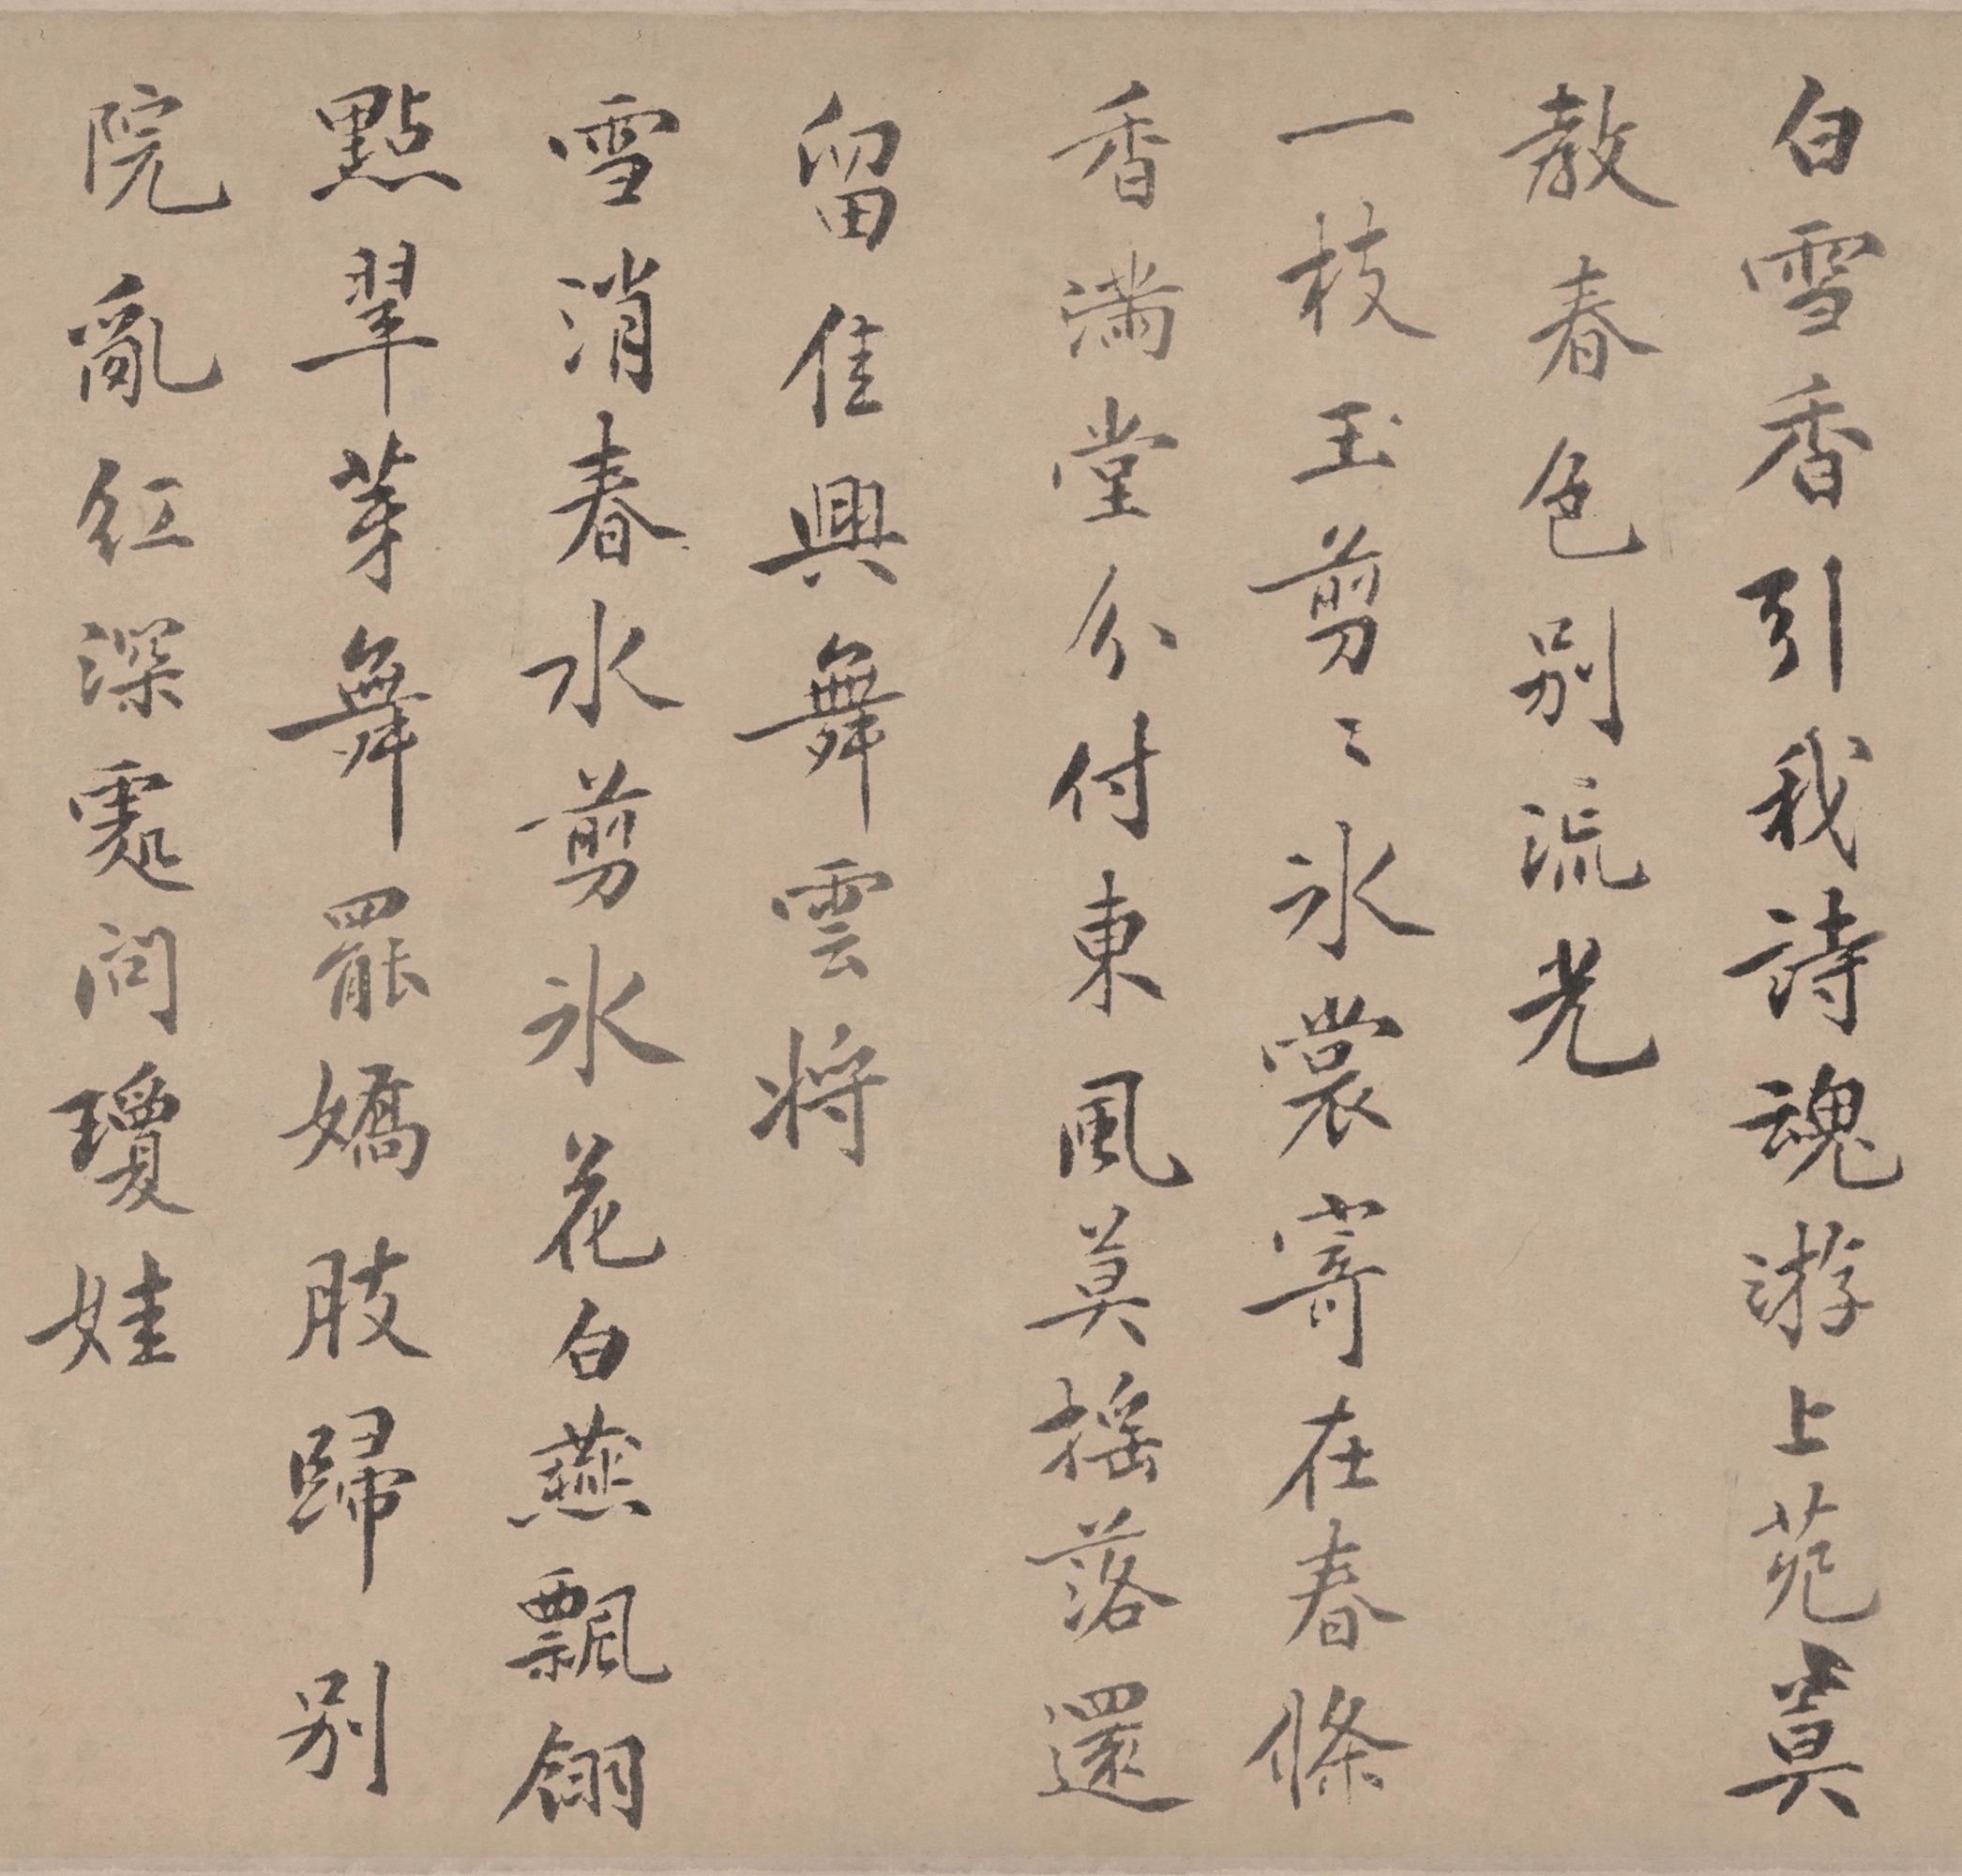 白雪香引我詩魂游上苑莫
教春色別流光
一枝玉剪〻氷裳寄在春條
香滿堂分付東風莫搖落還
留佳興舞雲將
雪消春水剪氷花白燕飄翎
點翠芽舞罷嬌肢歸別
院亂紅深處問瓊娃